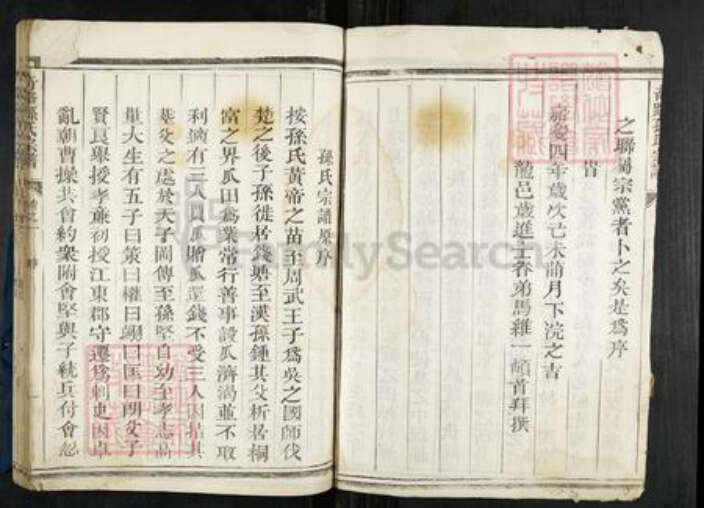 之聯蜀宗黨者卜之矣是爲序
旹
嘉慶四年歲次己未前月下浣之吉
龍邑歲進士眷弟馬維一頓首拜撰
孫氏宗譜原序
按孫氏黃帝之苗至周武王子爲吳之國師伐
楚之後子孫徙居錢塘至漢孫鍾其父析居桐
富之界瓜田爲業常行善事設瓜濟渴並不取
利適有三人買瓜贈瓜還錢不受三人因指其
葬父之處於天子岡傳至孫堅自幼至孝志高
量大生有五子曰策曰權曰翊曰匡曰朗父子
賢良舉授孝廉初授江東郡守遷爲刺史因卓
亂朝曹操共會約衆附會堅與子統兵付會忽
FamilySearch